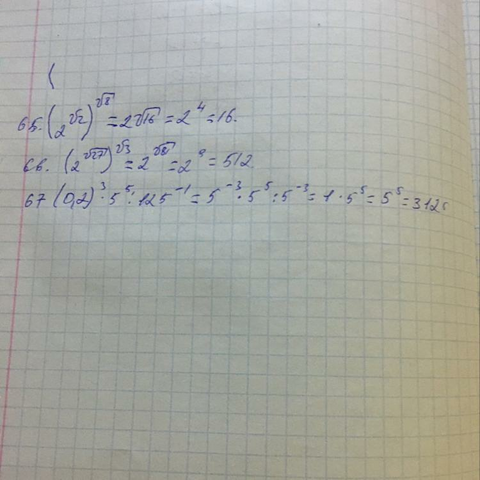 (
65. (2^√2)^√8 = 2^√16 = 2^4 = 16.
66. (2^√27)^√3 = 2^√81 = 2^9 = 512
67 (0,2)^3 · 5^5 : 125^-1 = 5^-3 · 5^5 : 5^-3 = 1 · 5^5 = 5^5 = 3125